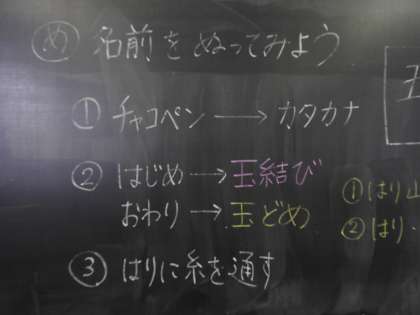 め 名前をぬってみよう
① チャコペン → カタカナ
② はじめ → 玉結び
おわり → 玉どめ
③ はりに糸を通す
① はり山
② はり・